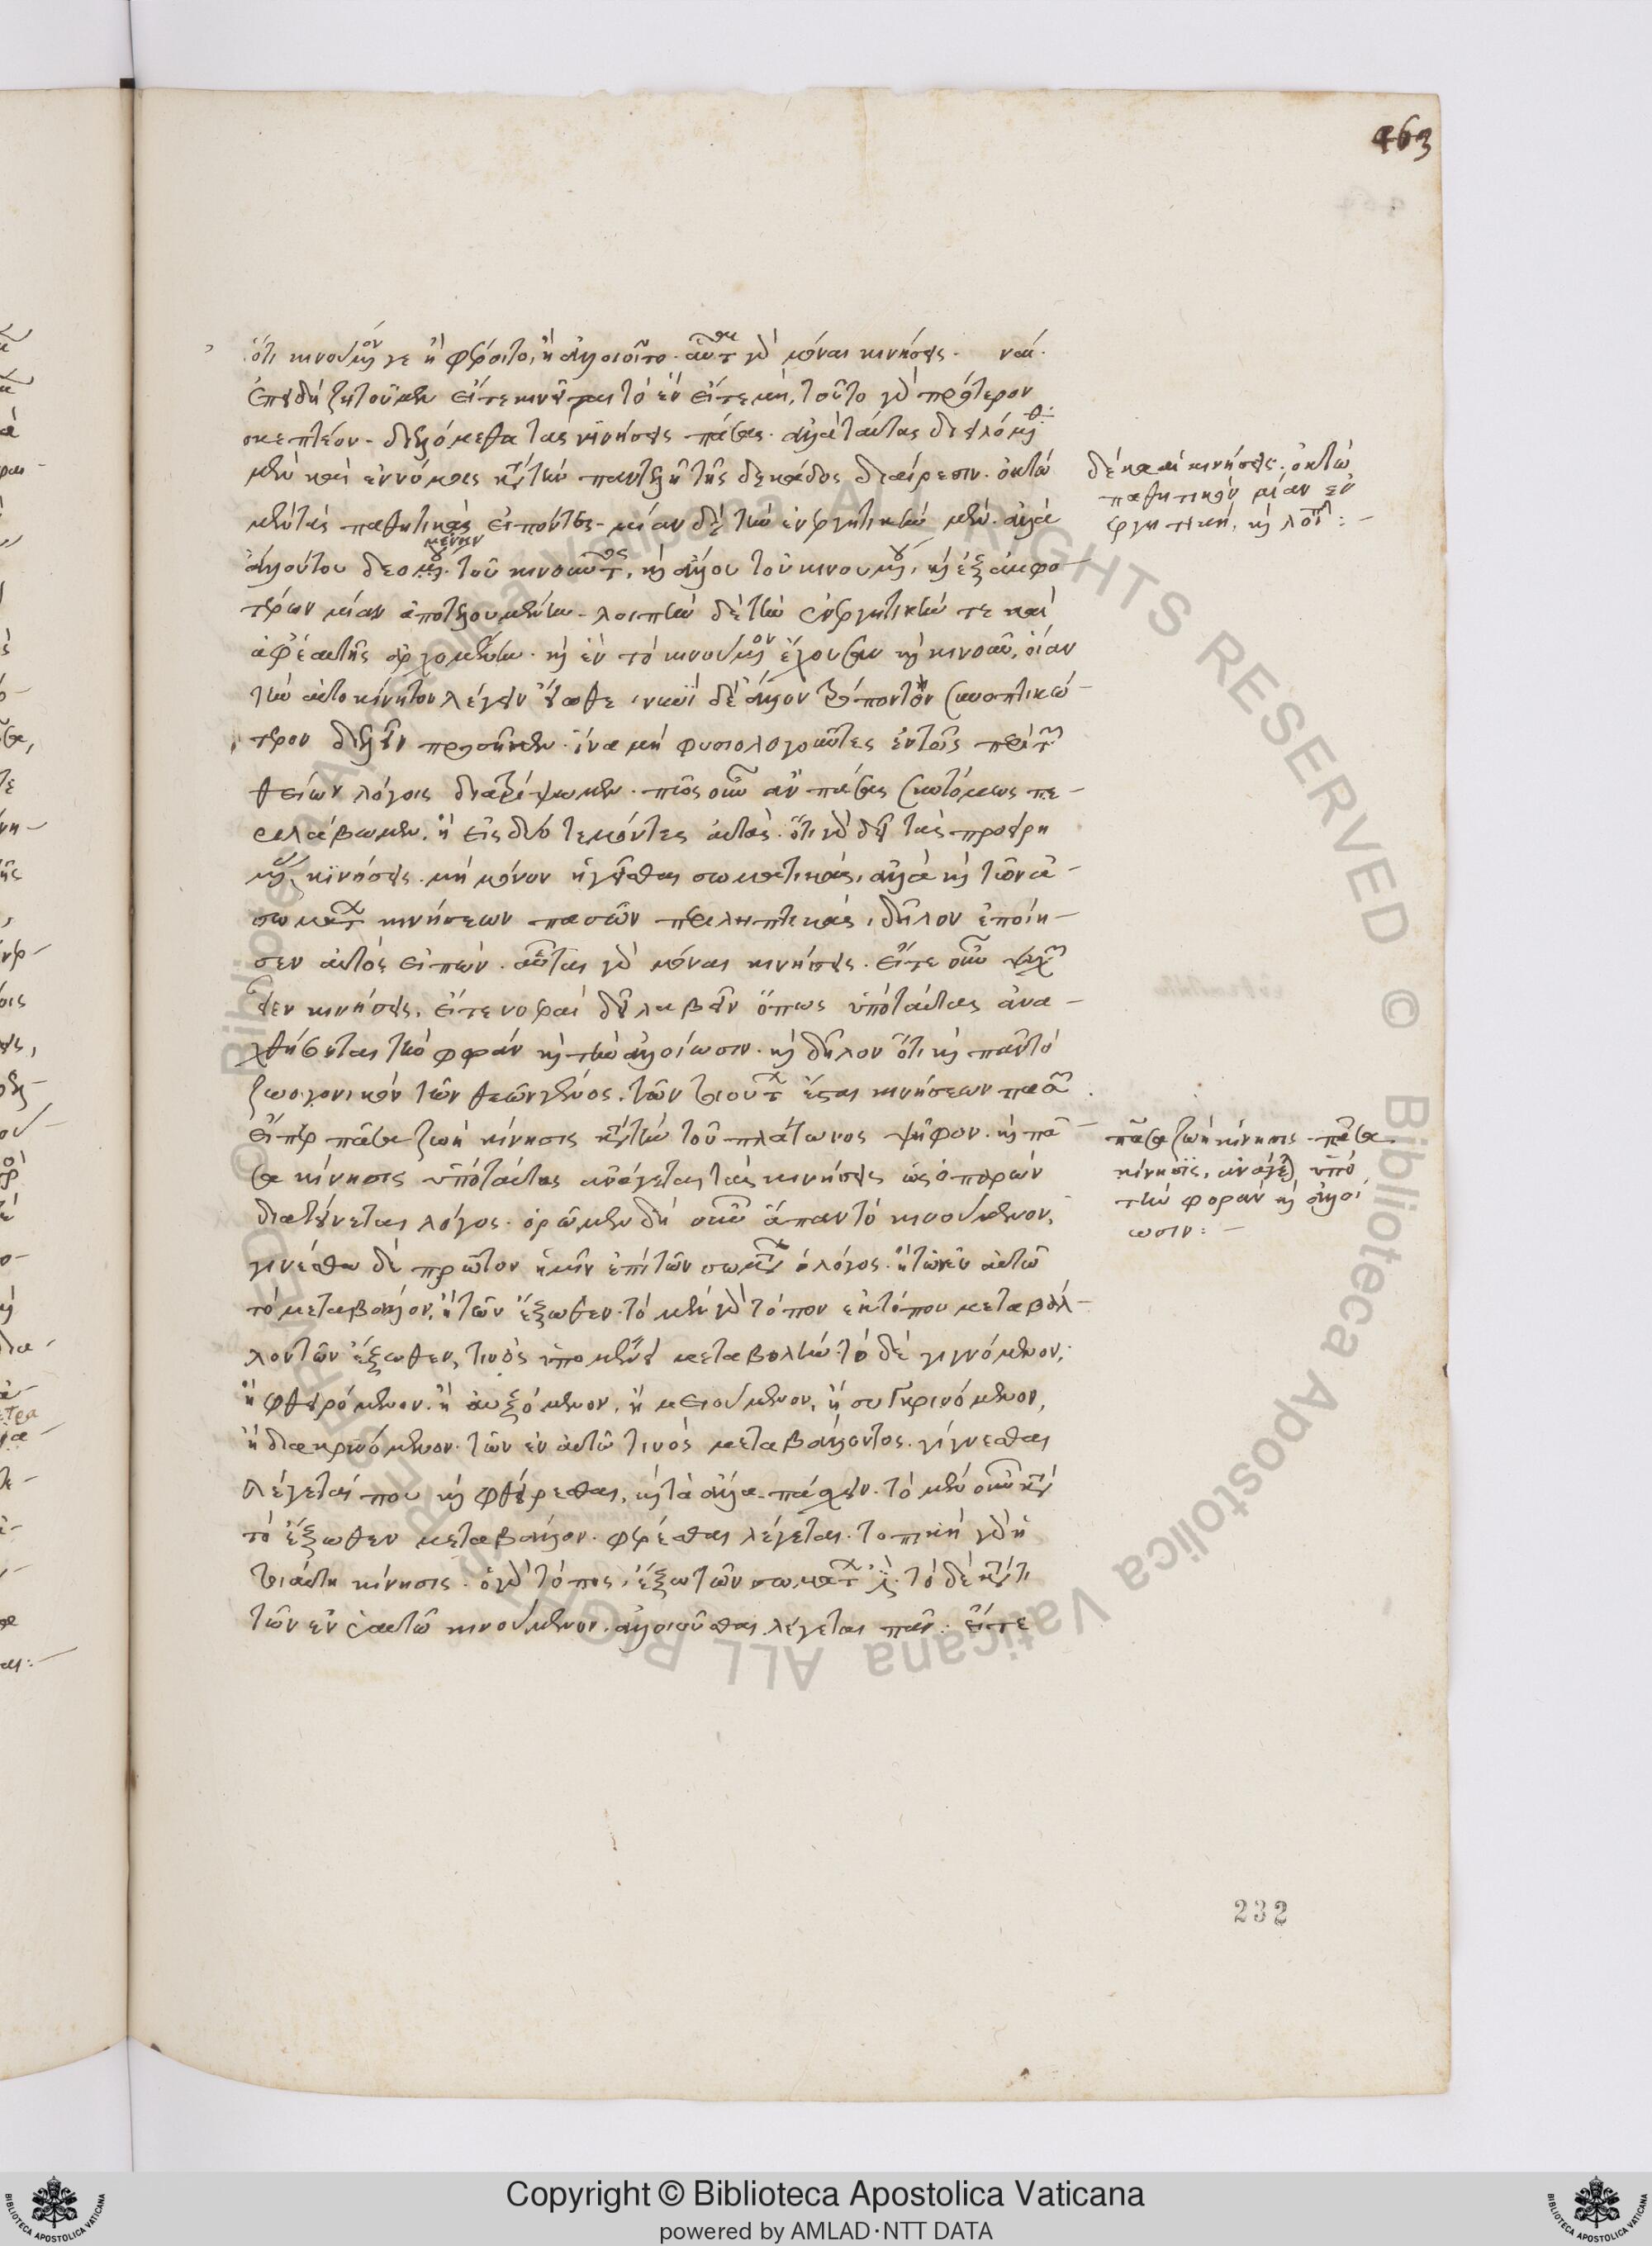 463
ὅτι κινούμενόν γε ἢ φέροιτο, ἢ ἀλλοιοῖτο. αὗται γὰρ μόναι κινήσεις. ναί.
Ἐπειδὴ ζητοῦμεν εἴτε κινεῖται τὸ ἓν εἴτε μή, τοῦτο γὰρ πρότερον
σκεπτέον. διελόμεθα τὰς κινήσεις πάσας. ἀλλὰ ταύτας διειλόμεθα
μὲν καὶ ἐν νόμοις κατὰ τὴν παντελῆ τῆς δεκάδος διαίρεσιν. ὀκτὼ
μὲν τὰς παθητικὰς εἰπόντες. μίαν δὲ τὴν ἐνεργητικὴν μὲν. ἀλλὰ
ἄλλου του δεομένην τοῦ κινοῦντος, καὶ ἄλλου τοῦ κινουμένου, καὶ ἐξ ἀμφο-
τέρων μίαν ἀποτελουμένην. λοιπὴν δὲ τὴν ἐνεργητικήν τε καὶ
ἀφ' ἑαυτῆς ἀρχομένην. καὶ ἓν τὸ κινούμενον ἔχουσαν καὶ κινοῦν, οἵαν
τὴν αὐτοκίνητον λέγειν εἴωθε. νυνὶ δὲ ἄλλον τρόπον συνοπτικώ-
τερον διελεῖν προσῆκεν. ἵνα μὴ φυσιολογοῦντες ἐν τοῖς περὶ τῶν
θείων λόγοις διατρίψωμεν. πῶς οὖν ἂν πάσας συντόμως πε-
ριλάβωμεν. ἢ εἰς δύο τεμόντες αὐτάς. ὅτι γὰρ δεῖ τὰς προειρη
μένας κινήσεις. μὴ μόνον ἡγεῖσθαι σωματικάς, ἀλλὰ καὶ τῶν ἀ-
σωμάτων κινήσεων πασῶν περιληπτικάς, δῆλον ἐποίη-
σεν αὐτὸς εἰπών. αὗται γὰρ μόναι κινήσεις. εἴτε οὖν ψυχῶν
εἶεν κινήσεις, εἴτε νοεραὶ δεῖ λαβεῖν ὅπως ὑπὸ ταύτας ἀνα-
χθήσεται τὴν φορὰν καὶ τὴν ἀλλοίωσιν. καὶ δῆλον ὅτι καὶ πᾶν τὸ
ζωογονικὸν τῶν θεῶν γένος. τῶν τοιούτων ἔσται κινήσεων πασῶν
εἴπερ πᾶσα ζωὴ κίνησις κατὰ τὴν τοῦ πλάτωνος ψῆφον. καὶ πᾶ-
σα κίνησις ὑπὸ ταύτας ἀνάγεται τὰς κινήσεις ὡς ὁ παρὼν
διατείνεται λόγος. ὁρῶμεν δὴ οὖν ἅπαν τὸ κινούμενον,
γινέσθω δὲ πρῶτον ἡμῖν ἐπὶ τῶν σωμάτων ὁ λόγος. ἢ τῶν ἐν αὐτῷ
τὸ μεταβάλλον, ἢ τῶν ἔξωθεν. τὸ μὲν γὰρ τόπον ἐκ τόπου μεταβάλ-
λον τῶν ἔξωθεν, τινὸς ὑπομένει μεταβολήν. τὸ δὲ γιγνόμενον,
ἢ φθειρόμενον. ἢ αὐξόμενον, ἢ μειούμενον, ἢ συγκρινόμενον,
ἢ διακρινόμενον. τῶν ἐν αὐτῷ τινὸς μεταβάλλοντος. γίγνεσθαι
λέγεταί που καὶ φθείρεσθαι, καὶ τὰ ἄλλα πάσχειν. τὸ μὲν οὖν κατὰ
τὸ ἔξωθεν μεταβάλλον. φέρεσθαι λέγεται. τοπικὴ γὰρ ἡ
τοιαύτη κίνησις. ὁ γὰρ τόπος, ἔξω τῶν σωμάτων ἐστί. τὸ δὲ κατά τι
τῶν ἐν ἑαυτῷ κινούμενον. ἀλλοιοῦσθαι λέγεται πᾶν. εἴτε
δέκα αἱ κινήσεις. ὀκτὼ
παθητικαὶ μίαν ἐν
εργητικὴ, καὶ
πᾶσα ζωὴ κίνησις. πᾶσα
κίνησις, ἀνάγεται ὑπὸ
τὴν φορὰν καὶ ἀλλοί
ωσιν:
232